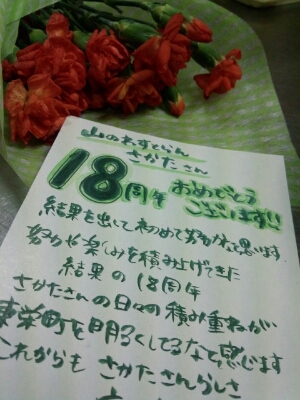 山のれすとらん
さかたさん
18周年 おめでとう
ございます!!
結果を出して初めて努力かなと思います
努力や楽しみを積み上げてきた
結果の18周年
さかたさんの日々の積み重ねが
東栄町を明るくしてるなと感じます
これからも さかたさんらしさ